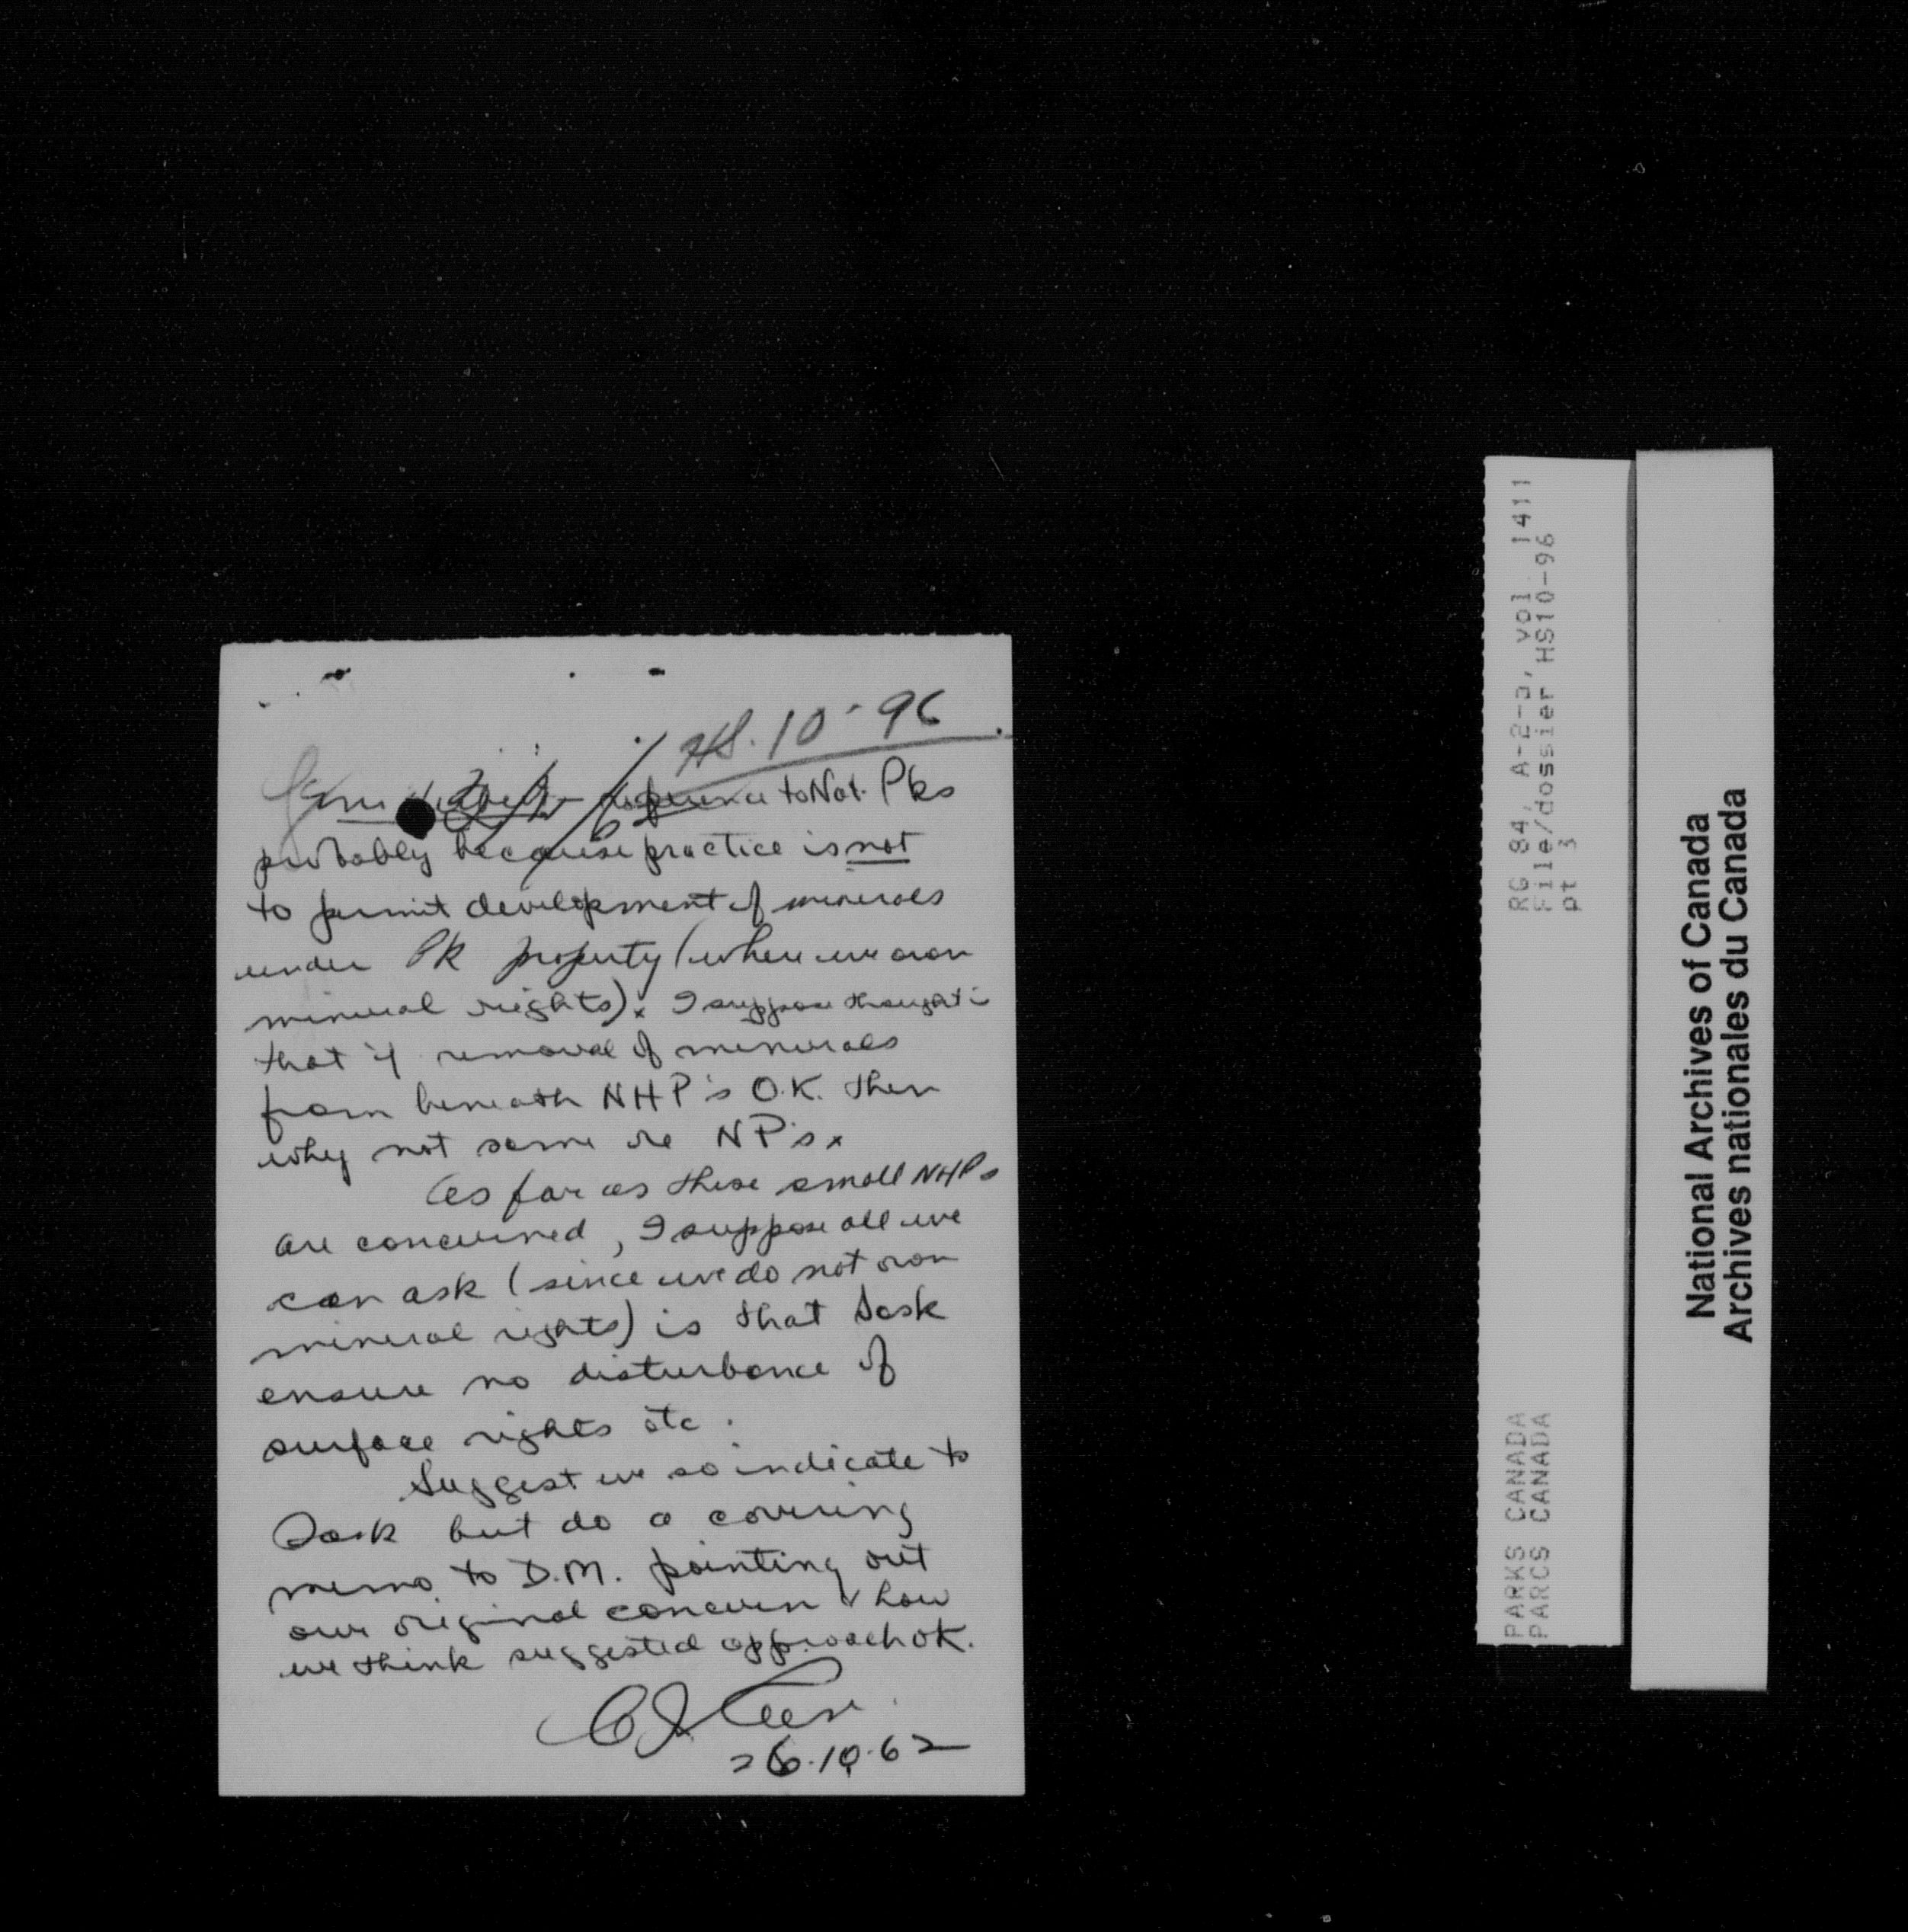 HS. 10-96
reference to Nat. Pks
probably because practice is not
to permit development of minerals
under Pk property (where we own
mineral rights)x I suppose thought is
that if removal of minerals
from beneath NHP's O.K. then
why not same re NP'sx
As far as these small NHPs
are concerned, I suppose all we
can ask (since we do not own
mineral rights) is that Sask
ensure no disturbance of
surface rights etc.
Suggest we so indicate to
Sask but do a covering
memo to D.M. pointing out
our original concern & how
we think suggested approach OK.
26.10.62
RG 84, A-2-a, vol. 1411
File/dossier HS10-96
pt 3
PARKS CANADA
PARCS CANADA
National Archives of Canada
Archives nationales du Canada